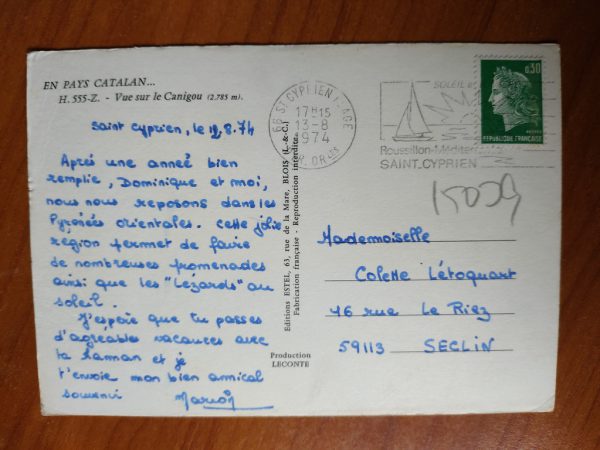 EN PAYS CATALAN...
H. 555-Z. - Vue sur le Canigou (2.785 m).
Saint Cyprien, le 12.8.74
Après une année bien
remplie, Dominique et moi,
nous nous reposons dans les
Pyrénées orientales. Cette jolie
région permet de faire
de nombreuses promenades
ainsi que les "Lézards" au
soleil.
J'espère que tu passes
d'agréables vacances avec
ta maman et je
t'envoie mon bien amical
souvenir
Marion
Editions ESTEL, 63, rue de la Mare, BLOIS (L.-&-C.)
Fabrication française - Reproduction interdite.
Production
LECONTE
66 ST CYPRIEN PLAGE
17H15
13-8
1974
PYR. OR LES
SOLEIL
Roussillon-Méditer
SAINT.CYPRIEN
0,30
REPUBLIQUE FRANÇAISE
Mademoiselle
Colette Létoquart
46 rue Le Riez
59113 SECLIN